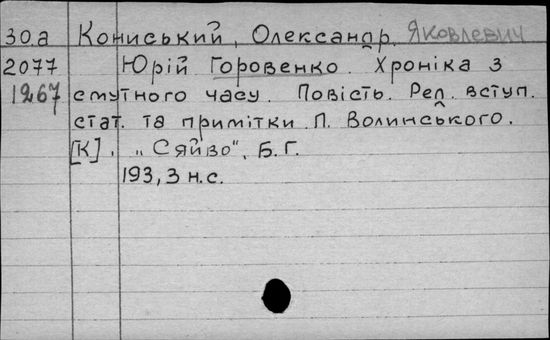 30.а Кониський, Олександр. Яковлевич
2077 Юрій Горовенко. Хроніка з
1267 смутного часу. Повість. Ред. вступ.
стат. та примітки П. Волинського.
[К]. „Сяйво", Б.Г.
193, 3 н.с.